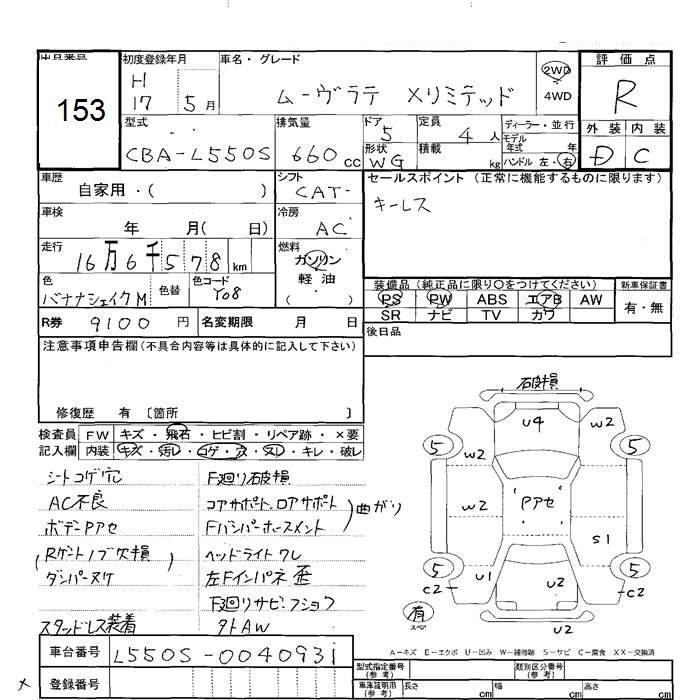 出品番号
153
初度登録年月
H
17 5 月
車名・グレード
ムーヴラテ Xリミテッド
2WD
4WD
評価点
R
外装 内装
D C
型式
CBA-L550S
排気量
660 cc
ドア
5
形状
WG
定員
4 人
積載
kg
ディーラー・並行
モデル
年式 年
ハンドル 左・右
車歴
自家用・( )
シフト
CAT
セールスポイント (正常に機能するものに限ります)
キーレス
車検
年 月( 日)
冷房
AC
走行
16万6千578 km
燃料
ガソリン
軽油
( )
色
バナナシェイクM
色替
色コード
Y08
装備品 (純正品に限り○をつけてください)
PS PW ABS エアB AW
SR ナビ TV カワ
新車保証書
有・無
R券 9100 円
名変期限 月 日
後日品
注意事項申告欄 (不具合内容等は具体的に記入して下さい)
修復歴 有 〔箇所 〕
検査員
記入欄
FW キズ・飛石・ヒビ割・リペア跡・×要
内装 キズ・汚レ・コゲ・穴・スレ・キレ・破レ
シートコゲ穴
AC不良
ボデーPアセ
(Rゲートノブ欠損)
ダンパーヌケ
スタッドレス装着
F廻り破損
コアサポート.ロアサポート
Fバンパーホースメント
曲がり
ヘッドライトワレ
左Fインパネ歪
下廻りサビ.フショク
外AW
破損
U4
W2
W2
W2
W2
Pアセ
S1
U1
U2
C2
C2
U2
5
5
5
5
有
スペア
A－キズ E－エクボ U－凹み W－補修跡 S－サビ C－腐食 XX－交換済
車台番号
L550S-0040931
登録番号
型式指定番号
(参考)
類別区分番号
(参考)
車庫証明用
(参考)
長さ cm
幅 cm
高さ cm